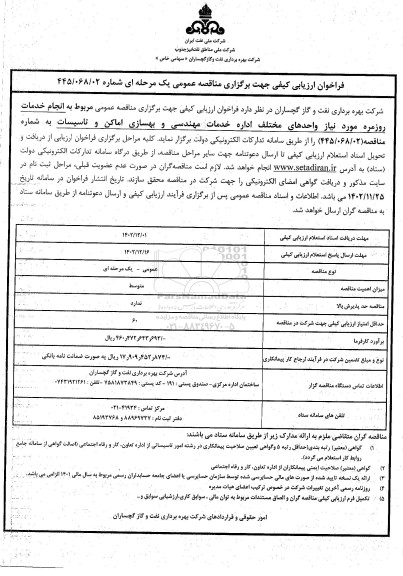 شرکت ملی نفت ایران
شرکت ملی مناطق نفتخیز جنوب
شرکت بهره برداری نفت و گاز گچساران « سهامی خاص »
فراخوان ارزیابی کیفی جهت برگزاری مناقصه عمومی یک مرحله ای شماره ۴۴۵/۰۶۸/۰۲
شرکت بهره برداری نفت و گاز گچساران در نظر دارد فراخوان ارزیابی کیفی جهت برگزاری مناقصه عمومی مربوط به انجام خدمات
روزمره مورد نیاز واحدهای مختلف اداره خدمات مهندسی و بهسازی اماکن و تاسیسات به شماره
مناقصه(۴۴۵/۰۶۸/۰۲) را از طریق سامانه تدارکات الکترونیکی دولت برگزار نمایند. کلیه مراحل برگزاری فراخوان ارزیابی از دریافت و
تحویل اسناد استعلام ارزیابی کیفی تا ارسال دعوتنامه جهت سایر مراحل مناقصه، از طریق درگاه سامانه تدارکات الکترونیکی دولت
(ستاد) به آدرس www.setadiran.ir انجام خواهد شد. لازم است مناقصه‌گران در صورت عدم عضویت قبلی، مراحل ثبت نام در
سایت مذکور و دریافت گواهی امضای الکترونیکی را جهت شرکت در مناقصه محقق سازند. تاریخ انتشار فراخوان در سامانه تاریخ
۱۴۰۲/۱۱/۲۵ می باشد. اطلاعات و اسناد مناقصه عمومی پس از برگزاری فرآیند ارزیابی کیفی و ارسال دعوتنامه از طریق سامانه ستاد
به مناقصه گران ارسال خواهد شد.
مهلت دریافت اسناد استعلام ارزیابی کیفی ۱۴۰۲/۱۲/۰۱
مهلت ارسال پاسخ استعلام ارزیابی کیفی ۱۴۰۲/۱۲/۱۶
نوع مناقصه عمومی - یک مرحله ای
میزان اهمیت مناقصه متوسط
مناقصه حد پذیرش بالا ندارد
حداقل امتیاز ارزیابی کیفی جهت شرکت در مناقصه ۶۰
برآورد کارفرما ۴۶۰,۴۷۲,۶۴۳,۶۹۳/۰ ریال
نوع و مبلغ تضمین شرکت در فرآیند ارجاع کار پیمانکاری ۱۷,۹۰۹,۴۵۲,۸۷۴/۰ ریال به صورت ضمانت نامه بانکی
اطلاعات تماس دستگاه مناقصه گزار
آدرس شرکت بهره برداری نفت و گاز گچساران
ساختمان اداره مرکزی- صندوق پستی : ۱۹۱ - کد پستی : ۷۵۸۱۸۷۳۸۴۹ - تلفن : ۰۷۴۳۱۹۲۱۲۶۱
تلفن های سامانه ستاد
مرکز تماس : ۴۱۹۳۴-۰۲۱
دفتر ثبت نام : ۸۸۹۶۹۷۳۷ و ۸۵۱۹۳۷۶۸
مناقصه گران متقاضی ملزم به ارائه مدارک زیر از طریق سامانه ستاد می باشند:
۱) گواهی (معتبر) رتبه بندی(حداقل رتبه ۵ وگواهی تعیین صلاحیت پیمانکاری در رشته امور تاسیساتی از اداره تعاون، کار و رفاه اجتماعی (اصالت گواهی از سامانه جامع
روابط کار استعلام می گردد).
۲) گواهی (معتبر) صلاحیت ایمنی پیمانکاران از اداره تعاون، کار و رفاه اجتماعی
۳) ارائه یک نسخه تایید شده از صورت های مالی حسابرسی شده توسط سازمان حسابرسی یا اعضای جامعه حسابداران رسمی مربوط به سال مالی ۱۴۰۱ الزامی می باشد.
۴) روزنامه رسمی آخرین تغییرات شرکت در خصوص ترکیب اعضای هیات مدیره
۵) تکمیل فرم ارزیابی کیفی مناقصه گران و الصاق مستندات مربوط به توان مالی ، سوابق کاری،ارزشیابی سوابق و..
امور حقوقی و قراردادهای شرکت بهره برداری نفت و گاز گچساران